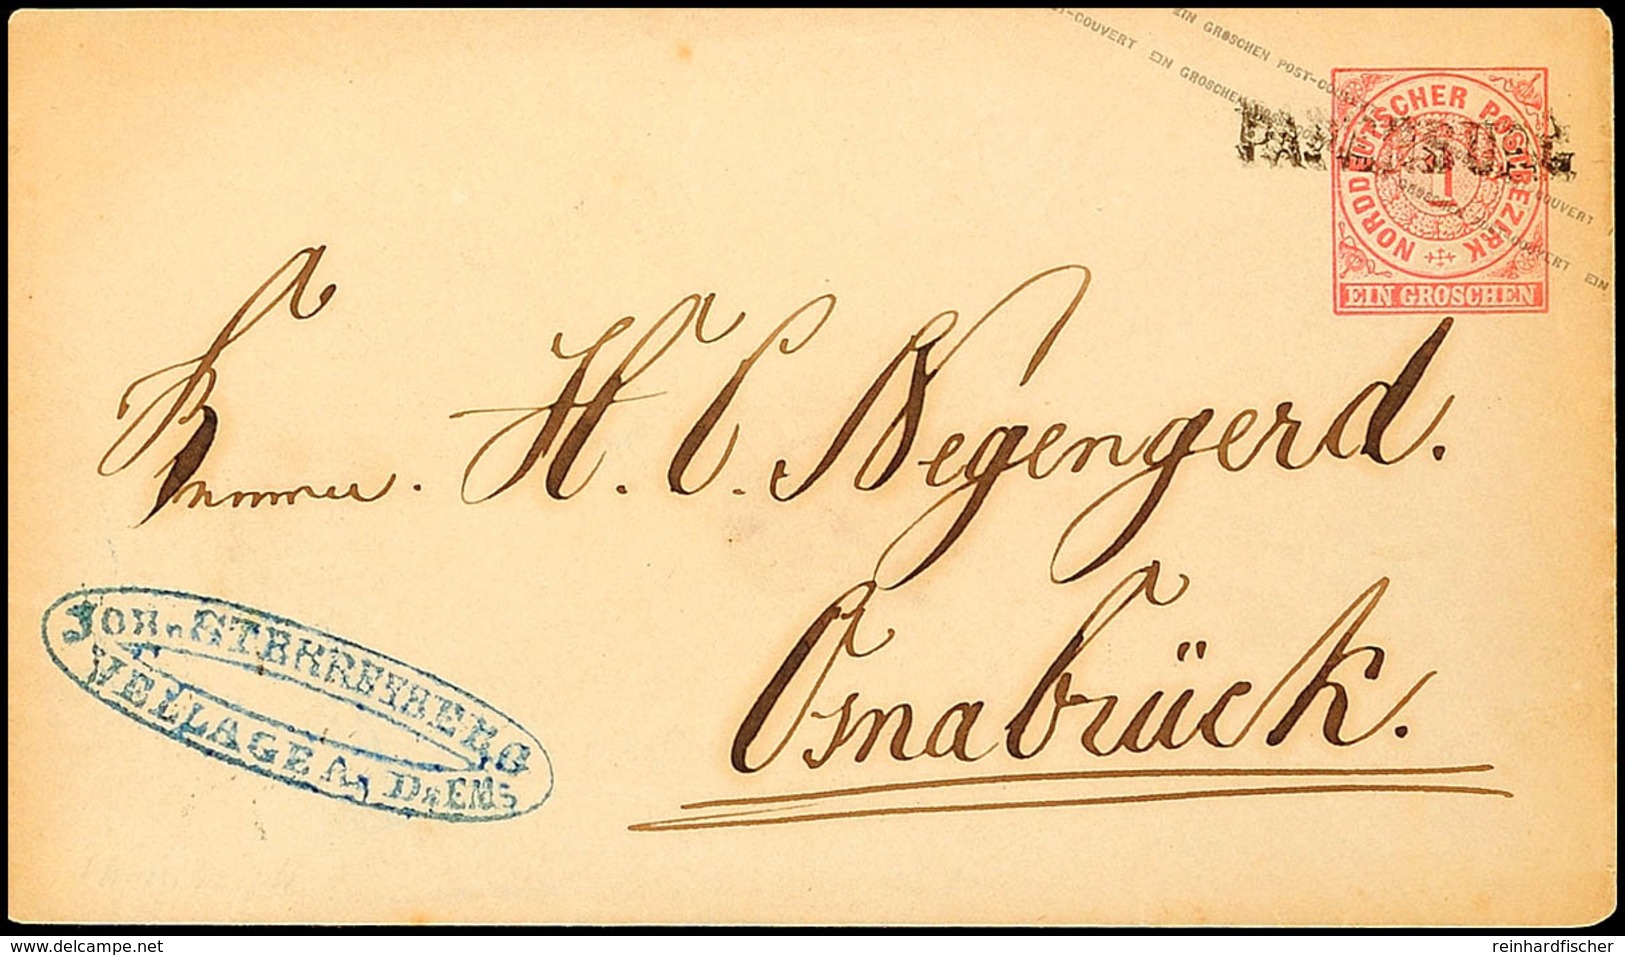 EIN GROSCHEN POST-COUVERT
POST-COUVERT EIN GROSCHEN
COUVERT
GROSCHEN POST-COUVERT EIN
NORDDEUTSCHER POSTBEZIRK
1
EIN GROSCHEN
H. C. Wegengerd.
Osnabrück.
JOH. STERREYBERG
VELLAGE A. D. EMS
delcampe.net
reinhardfischer